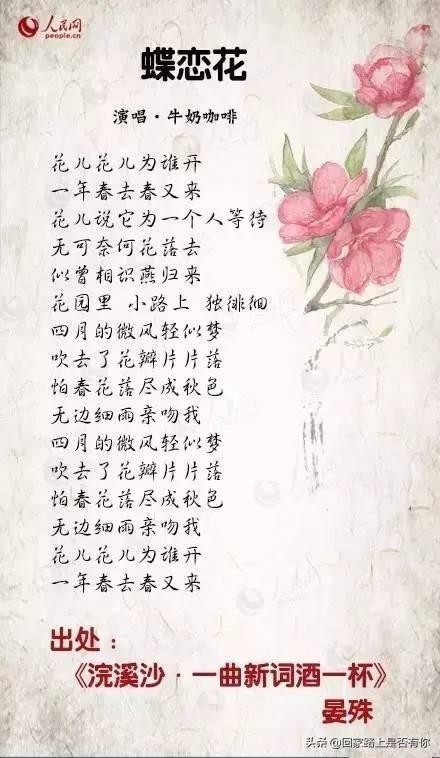 人民网
people.cn
蝶恋花
演唱·牛奶咖啡
花儿花儿为谁开
一年春去春又来
花儿说它为一个人等待
无可奈何花落去
似曾相识燕归来
花园里 小路上 独徘徊
四月的微风轻似梦
吹去了花瓣片片落
怕春花落尽成秋色
无边细雨亲吻我
四月的微风轻似梦
吹去了花瓣片片落
怕春花落尽成秋色
无边细雨亲吻我
花儿花儿为谁开
一年春去春又来
出处:
《浣溪沙·一曲新词酒一杯》
晏殊
头条 @回家路上是否有你